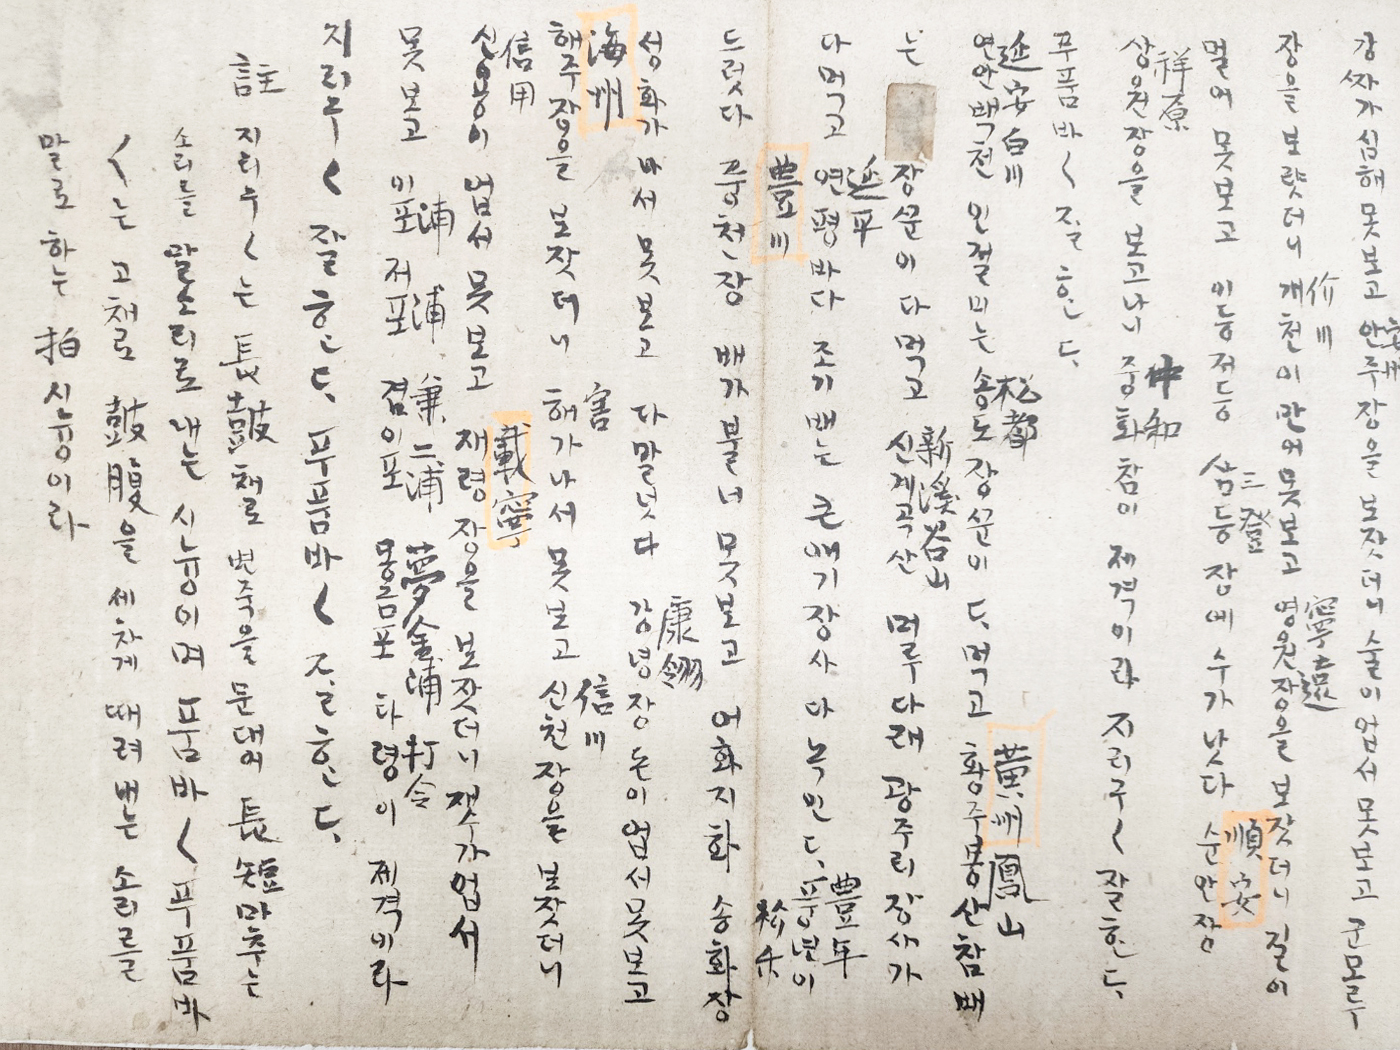 강짜가 심해 못보고 안주장을 보잣더니 술이 업서 못보고 곤모루
장을 보럇더니 개천이 만어 못보고 영원장을 보잣더니 길이
价川
寧遠
멀어 못보고 이등저등 삼등장에 수가 낫다 순안장
三登
順安
상원장을 보고나니 중화참이 제격이라 지리구〱 잘한다
祥原
中和
푸품바〱 잘한다
연안백천 인절미는 송도장꾼이 다 먹고 황주봉산참배
延安白川
松都
黄州鳳山
는 장꾼이 다 먹고 신계곡산 머루다래 광주리장사가
新溪谷山
다먹고 연평바다 조기배는 큰애기장사 다 녹인다 풍년이
延平
豊年
드럿다 풍천장 배가 불너 못보고 어화지화 송화장
豊川
松禾
성화가 나서 못보고 다말넛다 강녕장 돈이 업서못보고
康翎
해주장을 보잣더니 해가나서 못보고 신천장을 보잣더니
海州
害
信川
신용이 업서 못보고 재령장을 보잣더니 잿수가업서
信用
載寧
못보고 이포 저포 겸이포 몽금포 타령이 제격이라
浦 浦 兼二浦 夢金浦 打令
지리구〱 잘한다 푸품바〱 잘한다
註 지리구〱는 長鼓채로 변죽을 문대어 長短마추는
소리를 말소리로 내는 시늉이며 품바〱 푸품바
〱는 고채로 鼓腹을 세차게 때려 내는 소리를
말로 하는 拍시늉이라